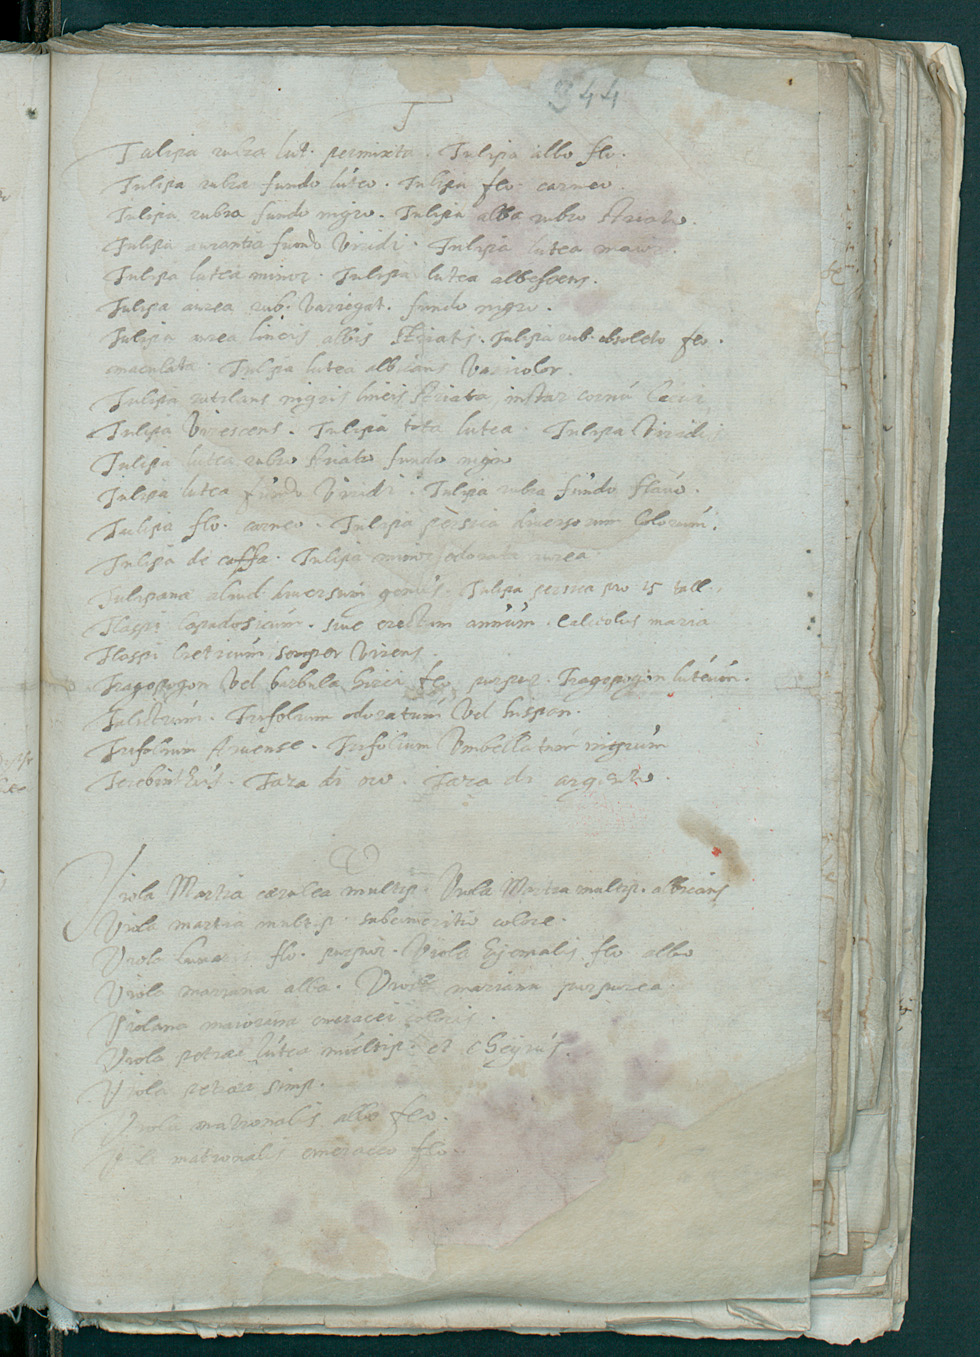 344
T
Tulipa rubra lut. permixta. Tulipa albo flo.
Tulipa rubra fundo luteo. Tulipa flo. carneo.
Tulipa rubra fundo nigro. Tulipa alba rubro striato.
Tulipa aurantia fundo Viridi. Tulipa lutea maior.
Tulipa lutea minor. Tulipa lutea albescens.
Tulipa aurea rub. Variegat. fundo nigro.
Tulipa aurea lineis albis striatis. Tulipa rub. obsoleto flo.
emaculata. Tulipa lutea albicans Varicolor.
Tulipa rutilans nigris lineis striata, instar cornu
Tulipa Virescens. Tulipa tota lutea. Tulipa Viridis
Tulipa lutea rubro striato fundo nigro
Tulipa lutea fundo Viridi. Tulipa rubra fundo flavo.
Tulipa flo. carneo. Tulipa persica diversorum Colorum.
Tulipa de caffa. Tulipa minor odorata aurea
Tulipana aliud diversum genus. Tulipa persica pro 15 tall.
Tlaspi Capadosicum. sive erectum annuum. Calceolus maria
Tlaspi Creticum semper Virens.
Tragopogon Vel barbula hirci flo. purpur. Tragopogon luteum.
Talictrum. Trifolium odoratum Vel hispan.
Trifolium Arvense. Trifolium Umbellatum nigrum
Terebinthus. Taza di oro. Taza di argento.
V
Viola Martia cærulea multip. Viola Martia multip. albicans
Viola martia multip. subcineritio colore.
Viola lunar flo. purpur. Viola hyemalis flo albo
Viola mariana alba. Viola mariana purpurea.
Violana maiorana cineracei coloris.
Viola petræa lutea multip. et Cheyrus.
Viola petræa simp.
Viola matronalis albo flo.
matronalis cineraceo flo.